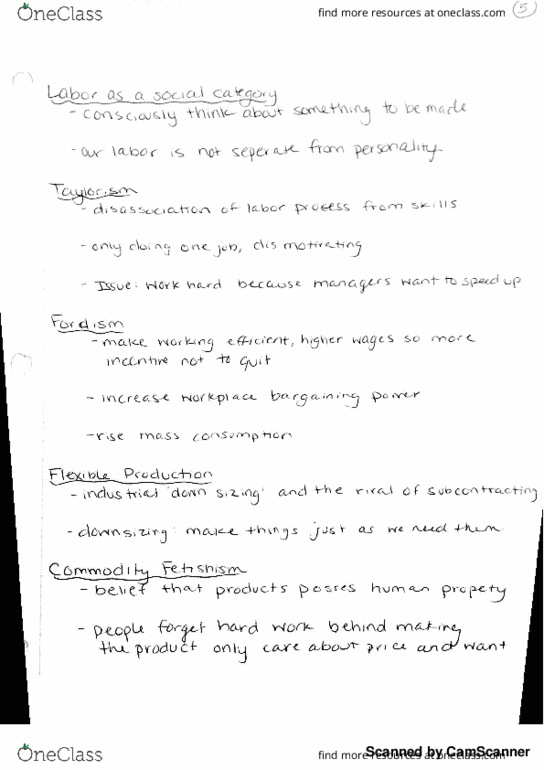 OneClass
find more resources at oneclass.com
5
Labor as a social category
- consciously think about something to be made
- our labor is not seperate from personality.
Taylorism
- disassociation of labor process from skills
- only doing one job, dis motivating
- Issue: work hard because managers want to speed up
Fordism
- make working efficient, higher wages so more
incentive not to quit
- increase workplace bargaining power
- rise mass consumption
Flexible Production
- industrial 'down sizing' and the rival of subcontracting
- downsizing: make things just as we need them
Commodity Fetishism
- belief that products posses human propety
- people forget hard work behind making
the product only care about price and want
OneClass
find more resources at oneclass.com
Scanned by CamScanner